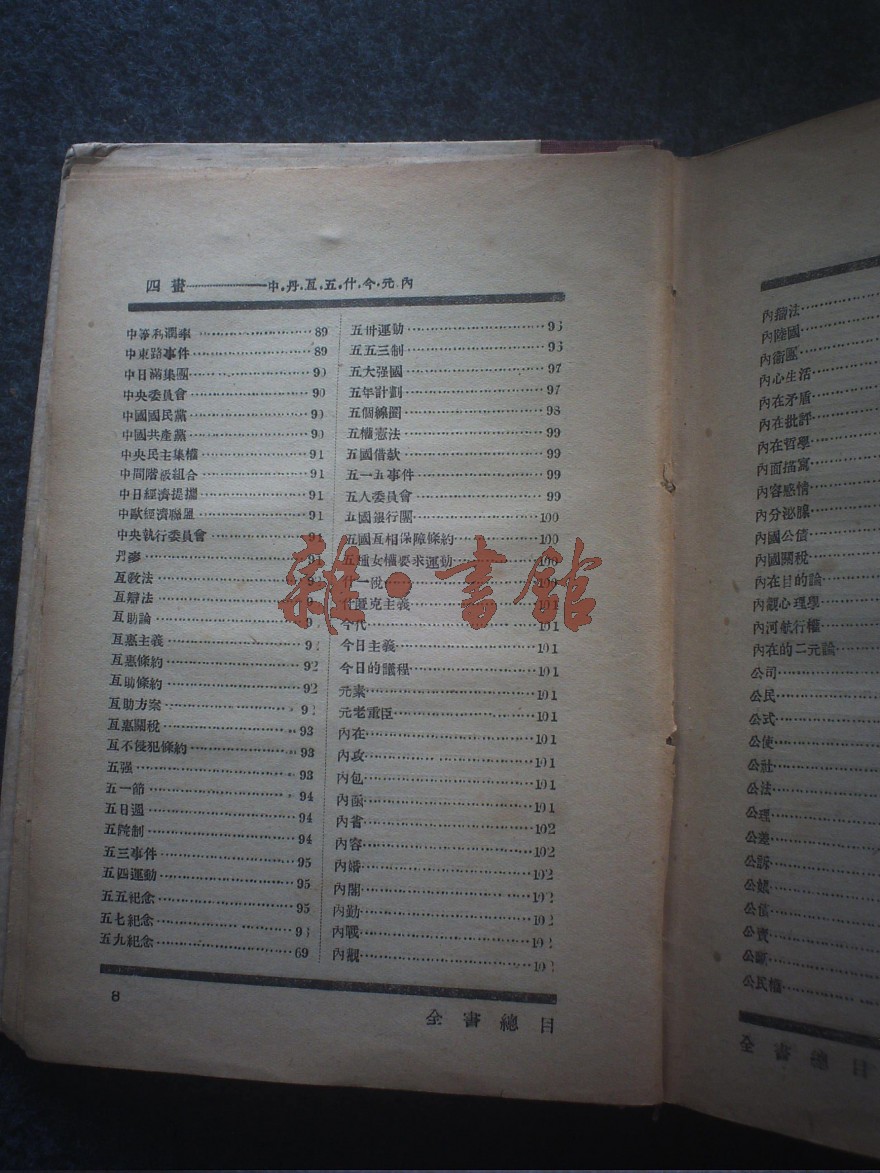 四畫————中.丹.互.五.什.今.元.內
中等利潤率 89
中東路事件 89
中日滿集團 90
中央委員會 90
中國國民黨 90
中國共產黨 90
中央民主集權 91
中間階級組合 91
中日經濟提攜 91
中歐經濟聯盟 91
中央執行委員會 91
丹麥
互教法
互辯法
互助論
互惠主義
互惠條約 92
互助條約 92
互助方案
互惠關稅 93
互不侵犯條約 93
五强 93
五一節 94
五日週 94
五院制 94
五三事件 95
五四運動 95
五五紀念 95
五七紀念
五九紀念 69
五卅運動 96
五五三制 96
五大强國 97
五年計劃 97
五個線圈 98
五權憲法 99
五國借款 99
五一五事件 99
五人委員會 99
五國銀行團 100
五國互相保障條約 100
五種女權要求運動 100
什一稅 100
什匿克主義 101
今代 101
今日主義 101
今日的議程 101
元素 101
元老重臣 101
內在 101
內攻 101
內包 101
內函 101
內省 102
內容 102
內婚 102
內閣 102
內勤 102
內戰 102
內觀 102
8
目總書全
雜·書館
內陸國
內衛團
內心生活
內在矛盾
內在批評
內在哲學
內面描寫
內容感情
內分泌腺
內國公債
內國關稅
內在目的論
內觀心理學
內河航行權
內在的二元論
公司
公民
公式
公使
公社
公法
公理
公差
公訴
公娼
公債
公賣
公斷
公民權
目總書全